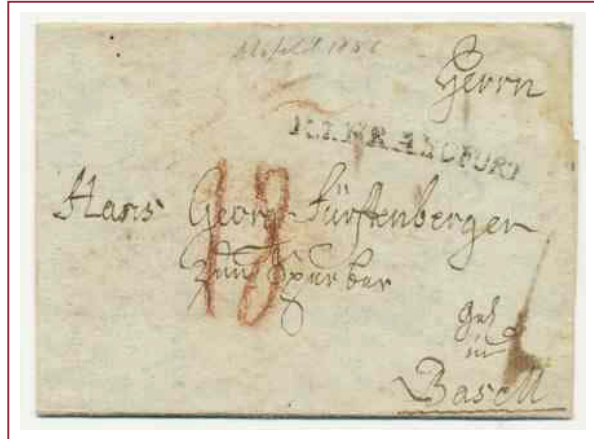 1786
Herrn
R.1.FRANCFURT
Hans Georg Fürstenberger
18
zum Sperber
in
Basell